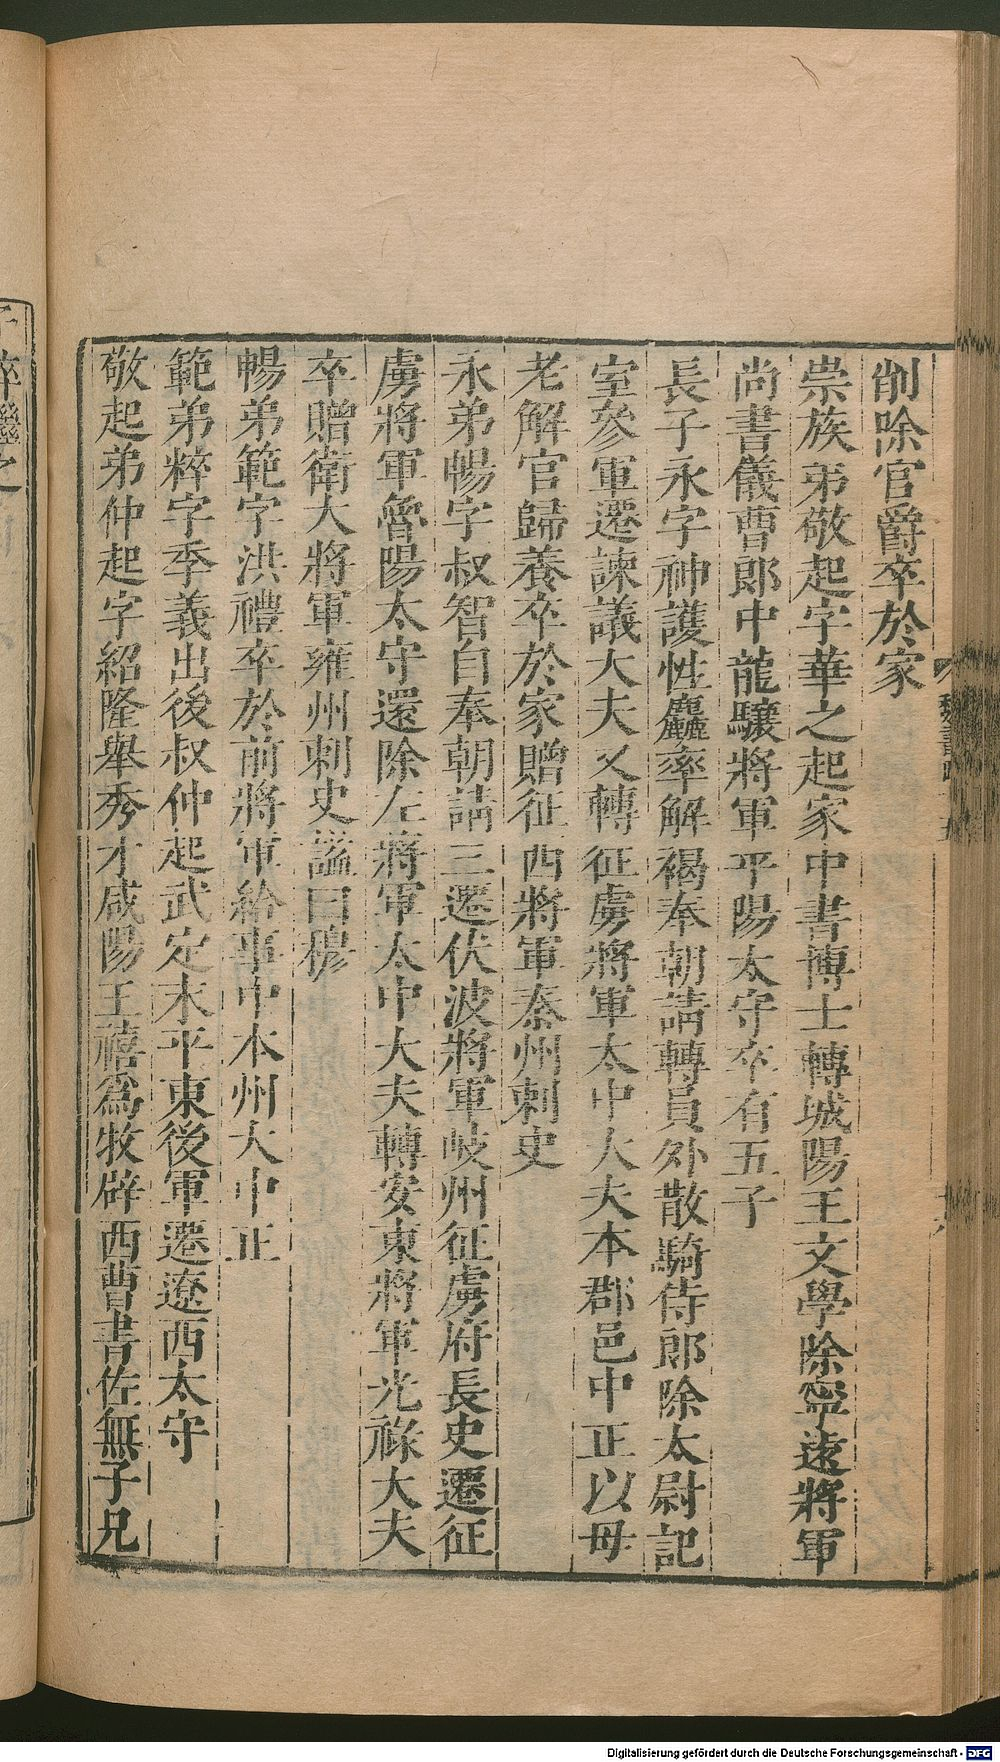 削除官爵卒於家
崇族弟敬起字華之起家中書博士轉城陽王文學除寧遠將軍
尚書儀曹郎中龍驤將軍平陽太守卒有五子
長子永字神護性麤率解褐奉朝請轉員外散騎侍郎除太尉記
室參軍遷諫議大夫又轉征虜將軍太中大夫本郡邑中正以母
老解官歸養卒於家贈征西將軍秦州刺史
永弟暢字叔智自奉朝請三遷伏波將軍岐州征虜府長史遷征
虜將軍魯陽太守還除左將軍太中大夫轉安東將軍光祿大夫
卒贈衛大將軍雍州刺史謚曰穆
暢弟範字洪禮卒於前將軍給事中本州大中正
範弟粹字季義出後叔仲起武定末平東後軍遷遼西太守
敬起弟仲起字紹隆舉秀才咸陽王禧爲牧辟西曹書佐無子兄
子粹繼之
Digitalisierung gefördert durch die Deutsche Forschungsgemeinschaft - DFG